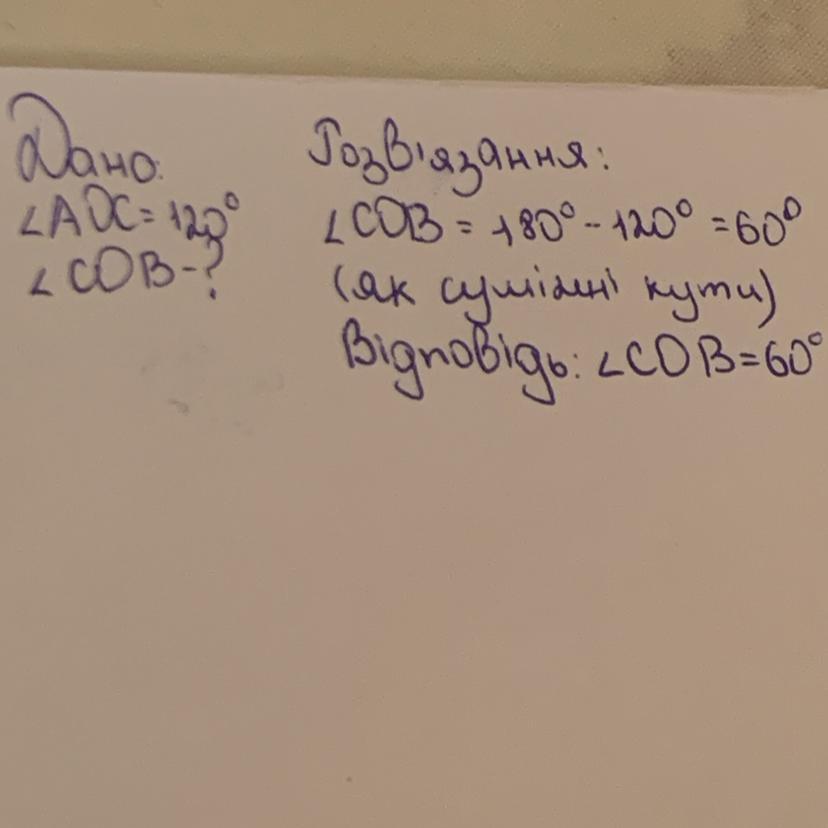 Дано:
∠AOC = 120°
∠COB - ?
Розв'язання:
∠COB = 180° - 120° = 60°
(як суміжні кути)
Відповідь: ∠COB = 60°